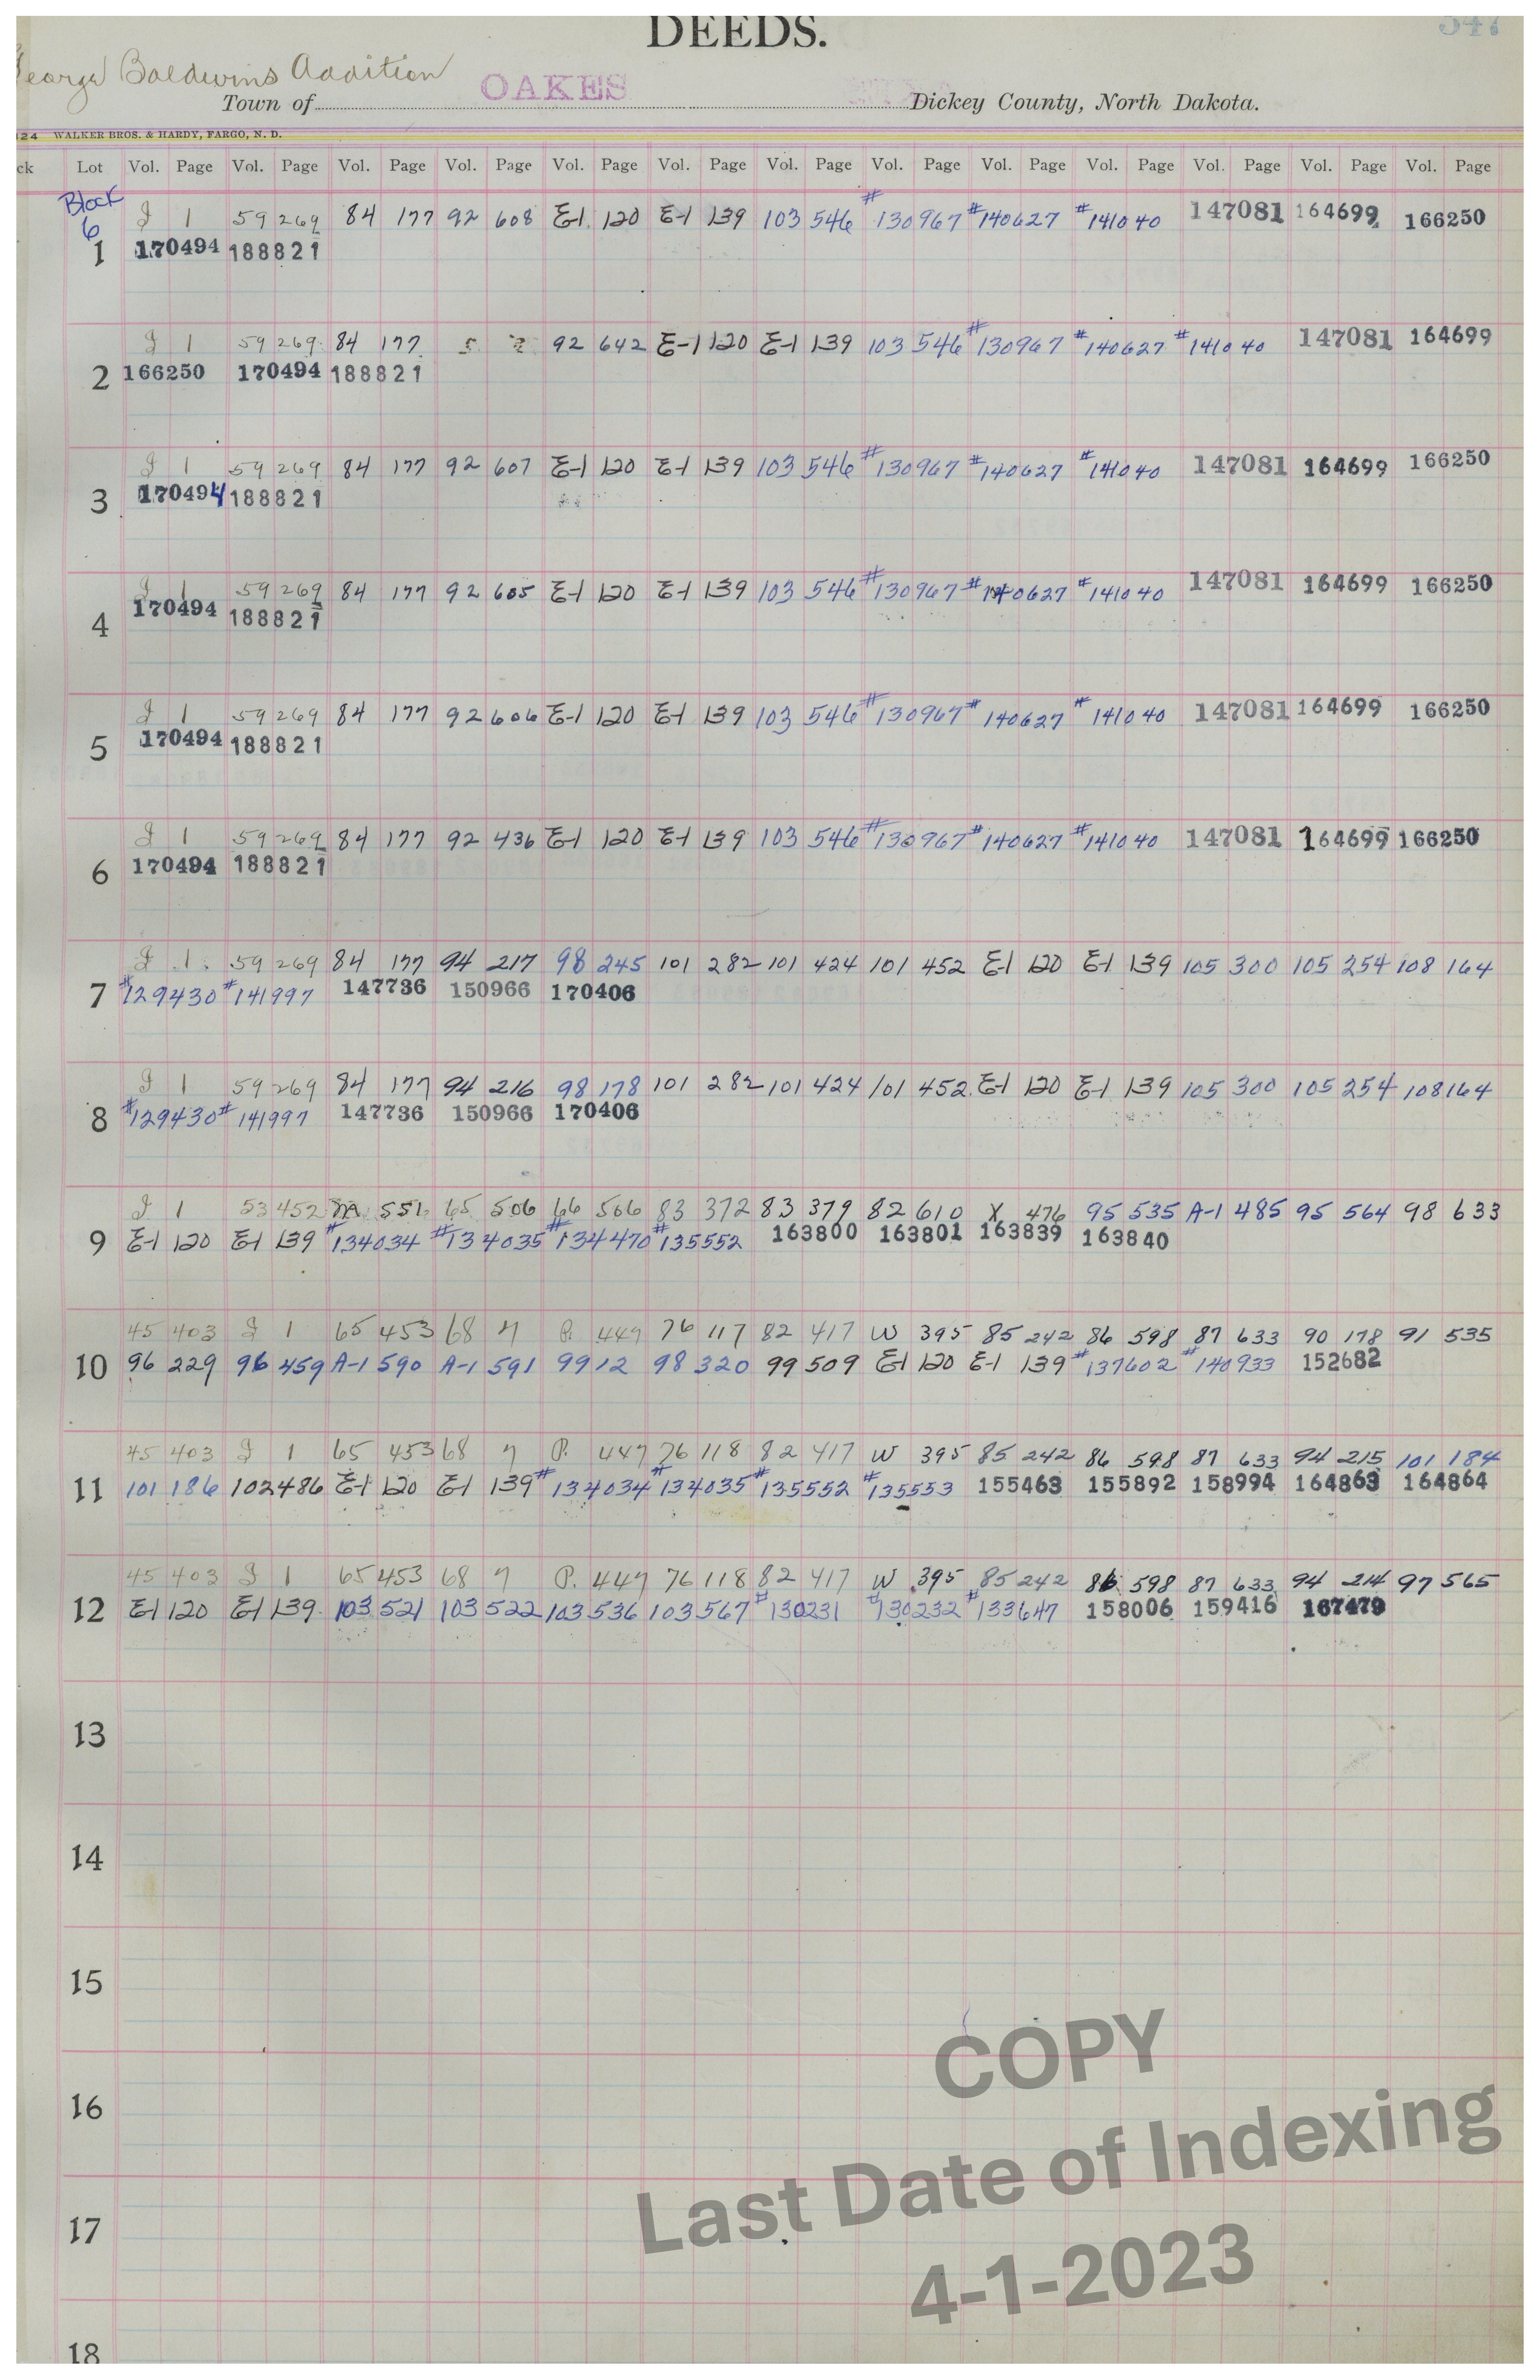 DEEDS. 347
George Baldwins Addition
Town of OAKES Dickey County, North Dakota.
124 WALKER BROS. & HARDY, FARGO, N. D.
ck Lot Vol. Page Vol. Page Vol. Page Vol. Page Vol. Page Vol. Page Vol. Page Vol. Page Vol. Page Vol. Page Vol. Page Vol. Page Vol. Page
Block
6
J 1 59 269 84 177 92 608 E-1 120 E-1 139 103 546 #130967 #140627 #141040 147081 164699 166250
1 170494 188821
J 1 59 269 84 177 92 642 E-1 120 E-1 139 103 546 #130967 #140627 #141040 147081 164699
2 166250 170494 188821
J 1 59 269 84 177 92 607 E-1 120 E-1 139 103 546 #130967 #140627 #141040 147081 164699 166250
3 170494 188821
J 1 59 269 84 177 92 605 E-1 120 E-1 139 103 546 #130967 #140627 #141040 147081 164699 166250
4 170494 188821
J 1 59 269 84 177 92 606 E-1 120 E-1 139 103 546 #130967 #140627 #141040 147081 164699 166250
5 170494 188821
J 1 59 269 84 177 92 436 E-1 120 E-1 139 103 546 #130967 #140627 #141040 147081 164699 166250
6 170494 188821
J 1 59 269 84 177 94 217 98 245 101 282 101 424 101 452 E-1 120 E-1 139 105 300 105 254 108 164
7 #129430 #141997 147736 150966 170406
J 1 59 269 84 177 94 216 98 178 101 282 101 424 101 452 E-1 120 E-1 139 105 300 105 254 108 164
8 #129430 #141997 147736 150966 170406
J 1 53 452 551 65 506 66 566 83 372 83 379 82 610 X 476 95 535 A-1 485 95 564 98 633
9 E-1 120 E-1 139 #134034 #134035 #134470 #135552 163800 163801 163839 163840
45 403 J 1 65 453 68 7 P. 447 76 117 82 417 W 395 85 242 86 598 87 633 90 178 91 535
10 96 229 96 459 A-1 590 A-1 591 99 12 98 320 99 509 E-1 120 E-1 139 #137602 #140933 152682
45 403 J 1 65 453 68 7 P. 447 76 118 82 417 W 395 85 242 86 598 87 633 94 215 101 184
11 101 186 102 486 E-1 120 E-1 139 #134034 #134035 #135552 #135553 155463 155892 158994 164863 164864
45 403 J 1 65 453 68 7 P. 447 76 118 82 417 W 395 85 242 86 598 87 633 94 214 97 565
12 E-1 120 E-1 139 103 521 103 522 103 536 103 567 #130231 #130232 #133647 158006 159416 167479
13
14
15
16
17
18
COPY
Last Date of Indexing
4-1-2023